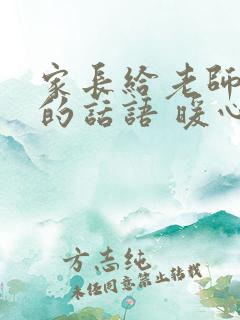 家長給老師
的話語 暖心
方志纯
未经同意禁止转载